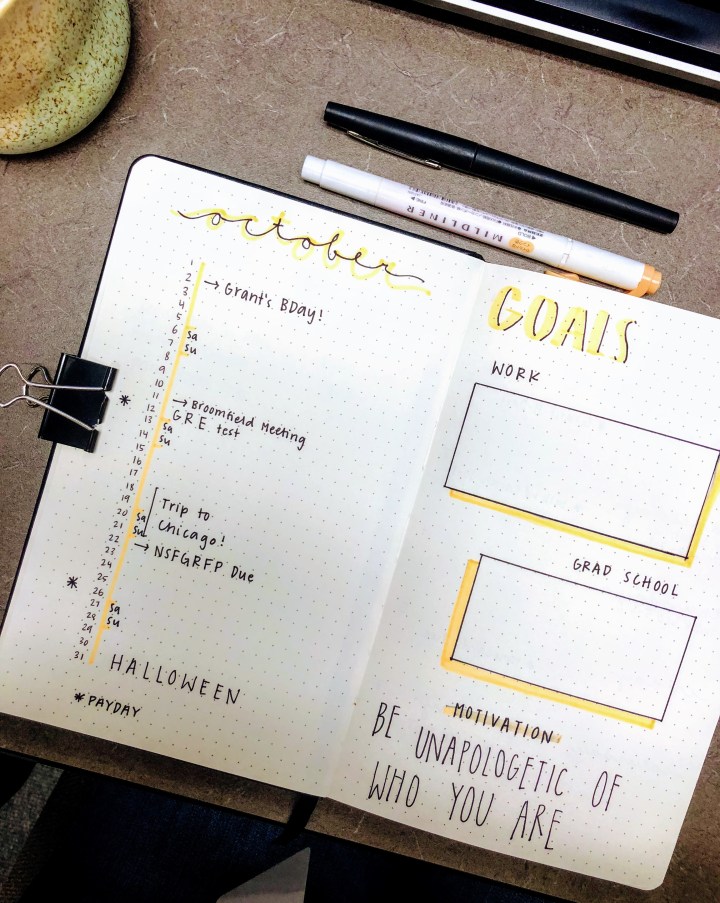 october
1
2 → Grant's BDay!
3
4
5
6 sa
7 su
8
9
10
11 → Broomfield Meeting
* 12 GRE test
13 sa
14 su
15
16
17
18
19 Trip to
20 sa Chicago!
21 su
22 → NSFGRFP Due
23
24
25
* 26
27 sa
28 su
29
30
31 HALLOWEEN
* PAYDAY
GOALS
WORK
GRAD SCHOOL
MOTIVATION
BE UNAPOLOGETIC OF
WHO YOU ARE
MILDLINER